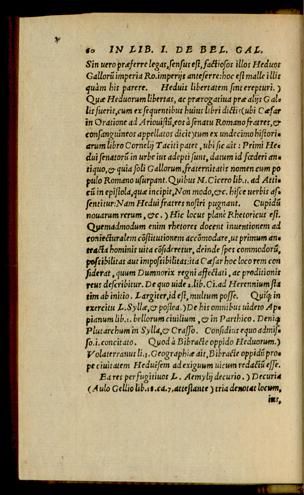 60 IN LIB. I. DE BEL. GAL.
Sin uero præferre legas, sensus est, factiosos illos Heduos
Gallorū imperia Ro. imperijs anteferre: hoc est malle illis
quàm his parere. Hedui libertatem sint erepturi. )
Quæ Heduorum libertas, ac prærogatiua præ alijs Gal-
lis fuerit, cum ex sequentibus huius libri dictis (ubi Cæsar
in Oratione ad Ariouistū, eos à senatu Romano fratres, &
consanguineos appellatos dicit) tum ex undecimo histori-
arum libro Cornelij Taciti patet, ubi sic ait: Primi He-
dui senatorū in urbe ius adepti sunt, datum id fœderi an-
tiquo, & quia soli Gallorum, fraternitatis nomen cum po
pulo Romano usurpant. Quibus M. Cicero lib. 1. ad Atti-
cū in epistola, quæ incipit, Non modo, &c. hisce uerbis as-
sentitur: Nam Hedui fratres nostri pugnant. Cupidū
nouarum rerum, &c. ) Hic locus planè Rhetoricus est.
Quemadmodum enim rhetores docent inuentionem ad
coniecturalem cōstitutionem accōmodare, ut primum an-
teacta hominis uita cōsyderetur, deinde spes commodorū,
possibilitas aut impossibilitas: ita Cæsar hoc loco rem con
siderat, quum Dumnorix regni affectati, ac proditionis
reus describitur. De quo uide 2. lib. Ci. ad Herennium sta
tim ab initio. Largiter, id est, multum posse. Quiq́; in
exercitu L. Syllæ, & postea. ) De his omnibus uidero Ap-
pianum lib. 1. bellorum ciuilium, & in Parthico. Deniq́;
Plutarchum in Sylla, & Crasso. Considius equo admis-
so. i. concitato. Quod à Bibracte oppido Heduorum. )
Volaterranus li. 3. Geographiæ ait, Bibracte oppidū pro-
pe ciuitatem Heduësem ad exiguum uicum redactū esse.
Ea res per fugitiuos L. Aemylij decurio. ) Decuria
(Aulo Gellio lib. 18. ca. 7. attestante) tria denotat locum,
ius,